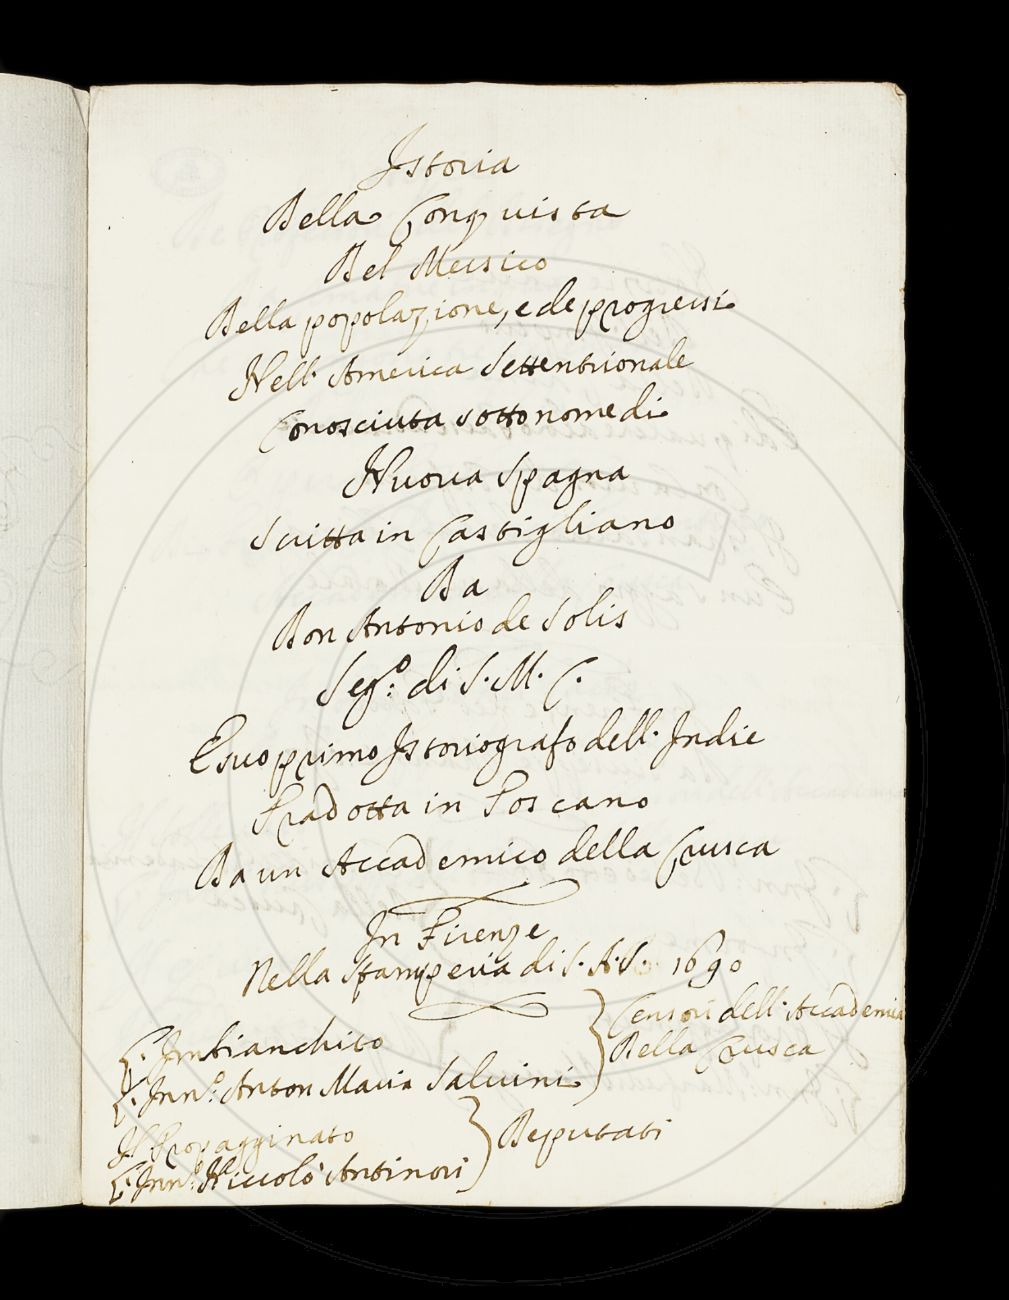 Istoria
Della Conquista
Del Messico
Della popolazione, e de progressi
Nell' America Settentrionale
Conosciuta sotto nome di
Nuova Spagna
Scritta in Castigliano
Da
Don Antonio de Solis
Seg.º di S. M. C.
E suo primo Istoriografo dell' Indie
Tradotta in Toscano
Da un Accademico della Crusca
In Firenze
Nella Stamperia di S. A. S. 1690
Imbianchito
Inn.º Anton Maria Salvini
Censori dell' Accademia
Della Crusca
Il Propagginato
Inn.º Niccolò Antinori
Deputati